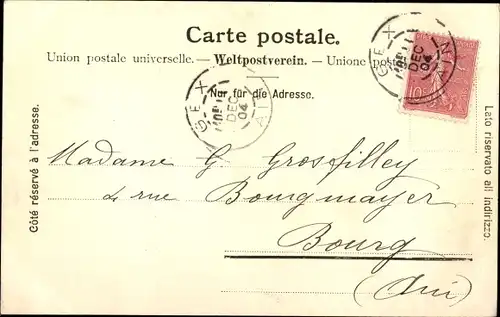 Carte postale.
Union postale universelle. — Weltpostverein. — Unione postale
Nur für die Adresse.
GEX
DEC
04
AIN
GEX
DEC
04
AIN
10
Côté réservé à l'adresse.
Lato riservato all indirizzo.
Madame G Grosfilley
4 rue Bourgmayer
Bourg
(Ain)